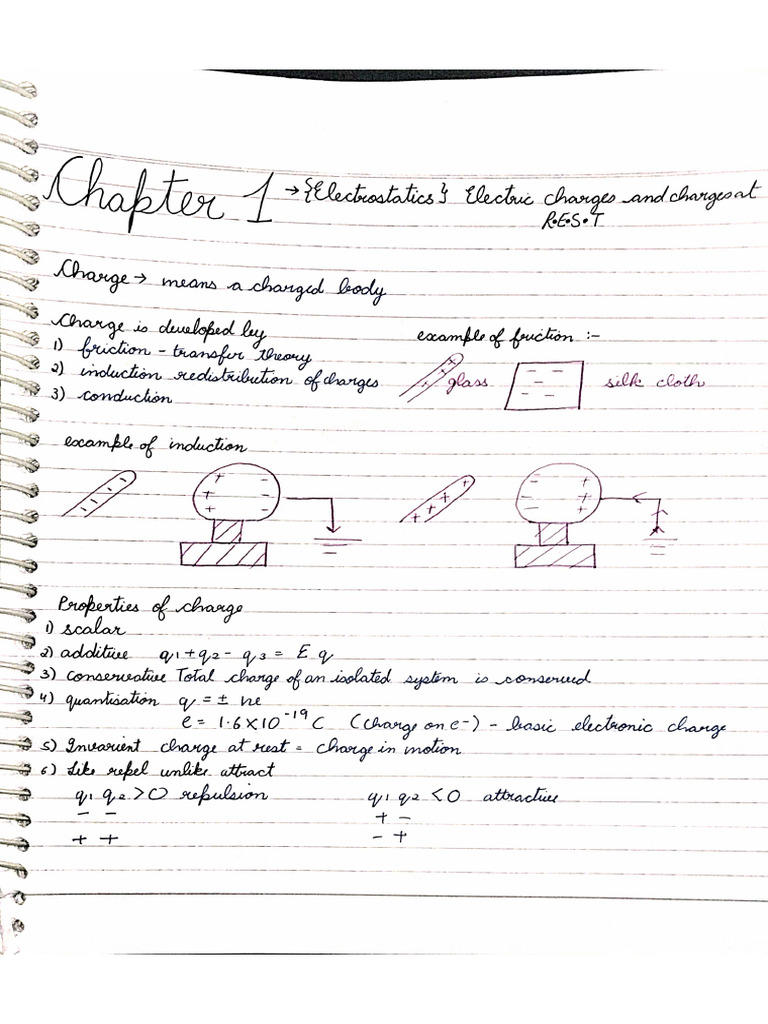 Chapter 1 → {Electrostatics} Electric charges and charges at
R.E.S.T
Charge → means a charged body
Charge is developed by
1) friction - transfer theory
2) induction redistribution of charges
3) conduction
example of friction :-
glass
silk cloth
- - -
- -
example of induction
- - - -
+ -
+ -
+ -
+ + + +
- +
- +
- +
Properties of charge
1) scalar
2) additive q1 + q2 - q3 = E q
3) conservative Total charge of an isolated system is conserved
4) quantisation q = ± ne
e = 1.6 × 10⁻¹⁹ C (Charge on e⁻) - basic electronic charge
5) Invarient charge at rest = charge in motion
6) Like repel unlike attract
q1 q2 > 0 repulsion q1 q2 < 0 attractive
- - + -
+ + - +